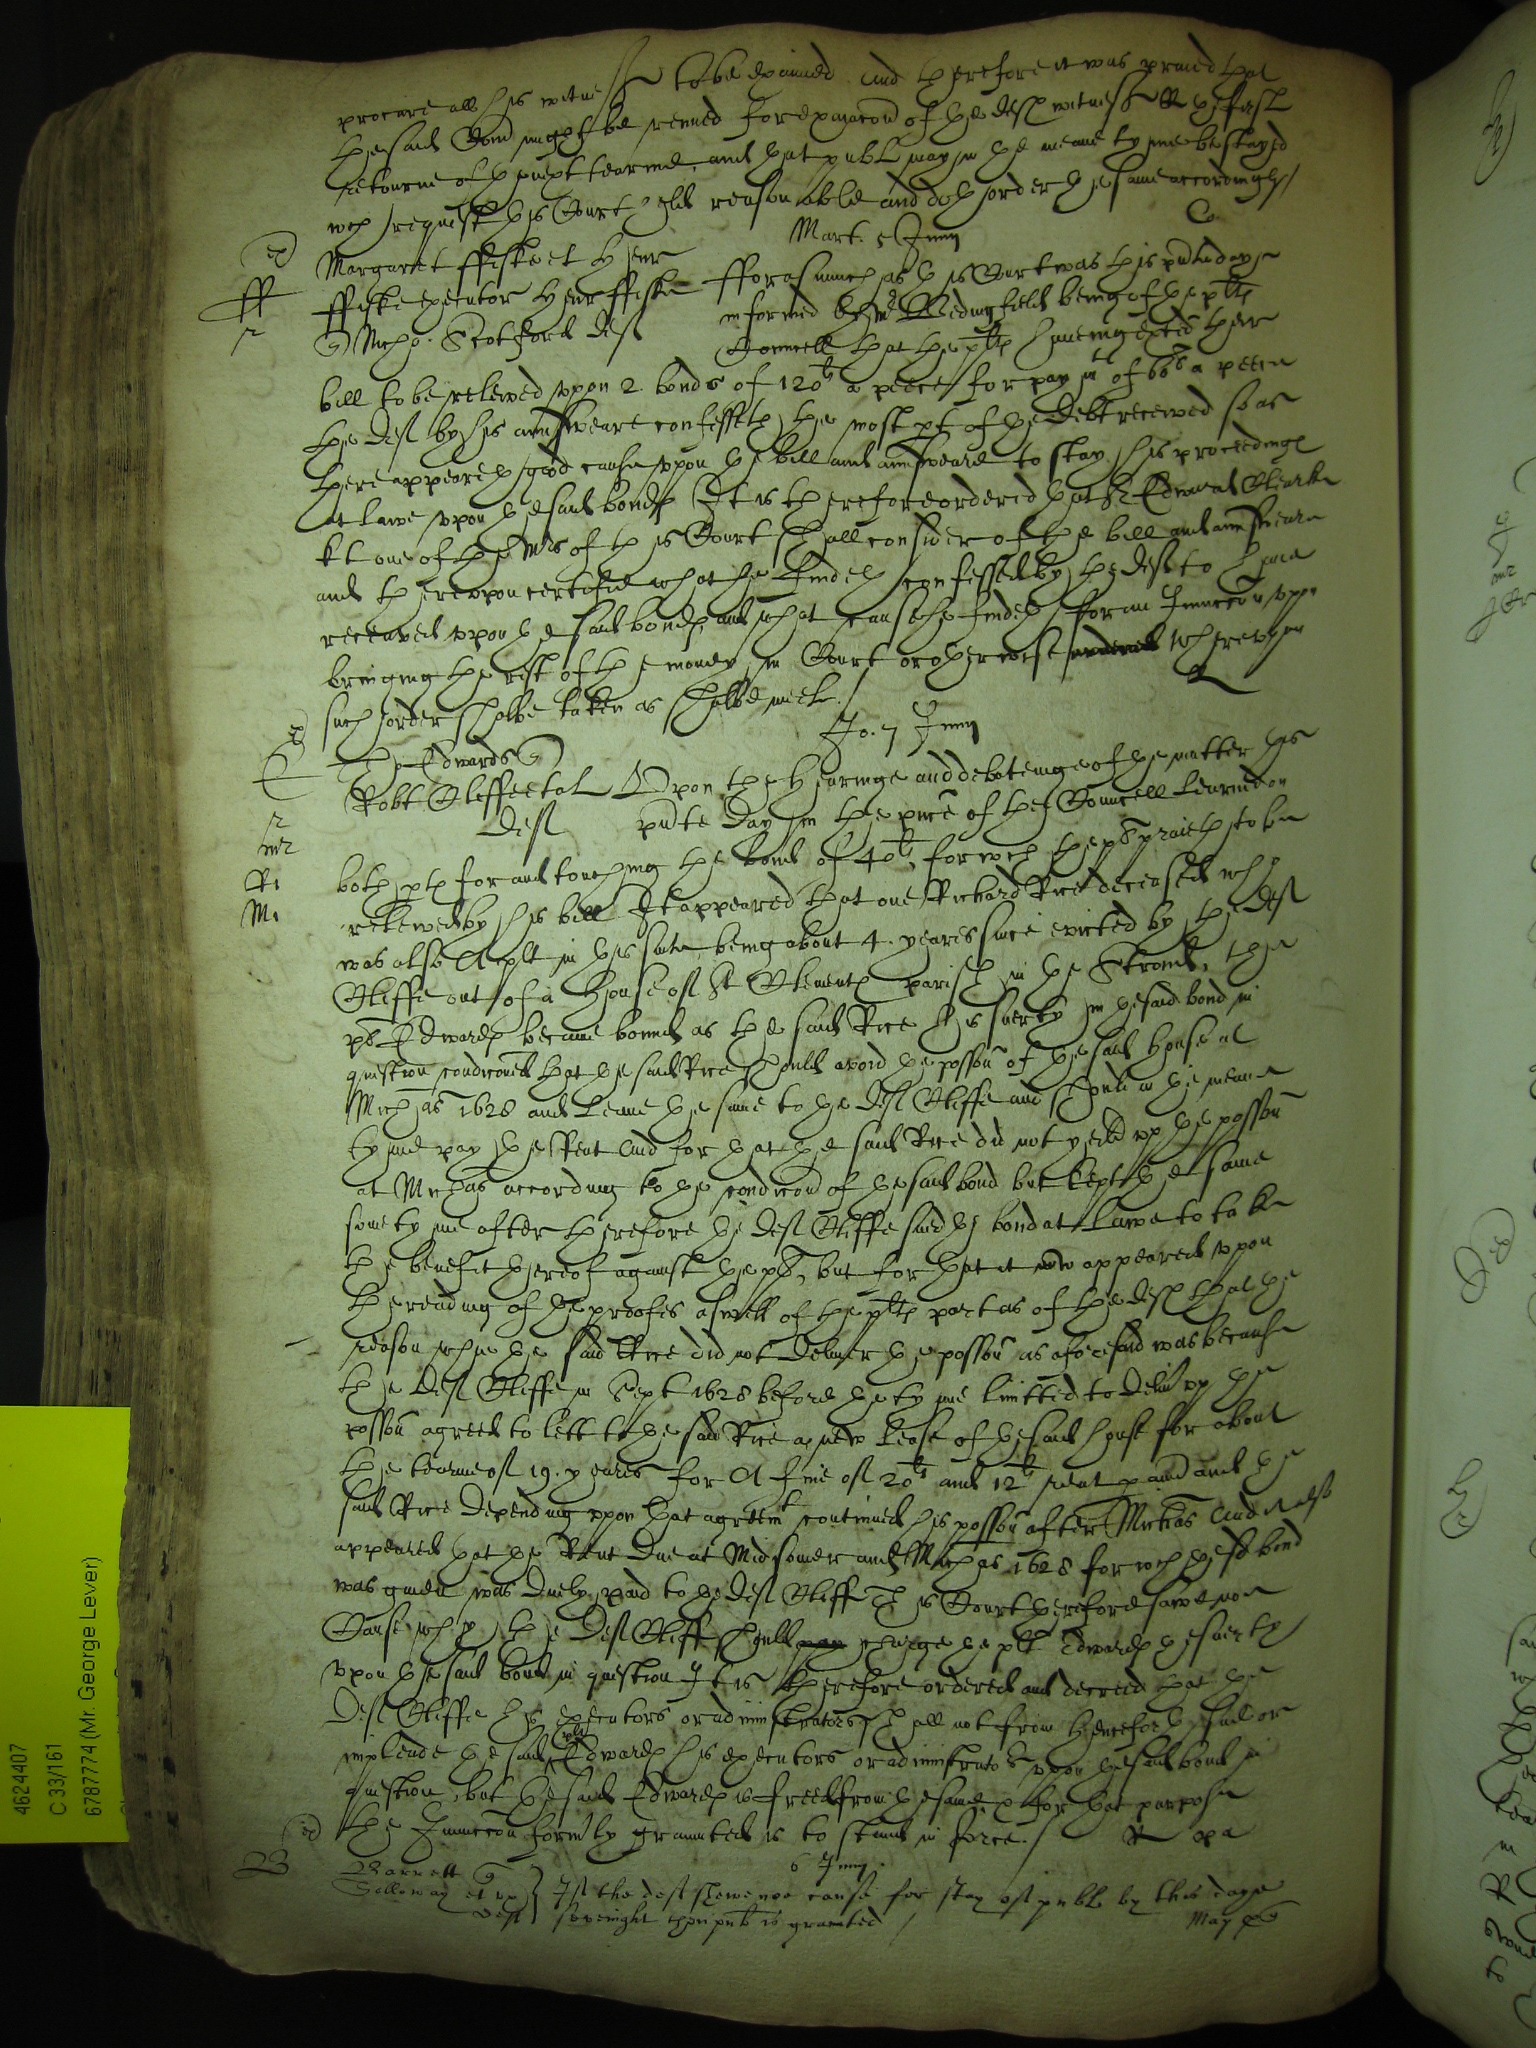 procure all his witnesses to be exaied And therefore it was praied that
the said Com might be renued for exaiacon of the defts witnesses the first
retourne of the next tearme, and that publ may in the meane tyme be stayed
wch request this Court held reasonable and doth order the same accordingly /
Mart. 5 Junij
Margarett ffiske et Henr
ffiske executor Henr ffiske
Nicho. Scotford deft
fforasmuch as this Court was this pnte daye
informed by Mr Bedingfield being of the plts
Councell that the plts haveing exhited their
bill to be releived vpon 2 bonds of 120li a peece for paymt of 66li a peece
the deft by his annsweare confesseth the most pt of the debt received so as
there appeareth good cause vpon the bill and annsweare to stay his proceedings
at lawe vpon the said bonds It is therefore ordered that Sr Edward Clearke
kt one of the Mrs of this Court shall consider of the bill and annsweare
and therevpon certifie what he findeth confessed by the deft to have
receaved vpon the said bonds, and what cause he findeth for an Iniuncon vppon
bringing the rest of the money in Court or otherwise wherevpon
such order shalbe taken as shalbe meet /
Jo. 7 Junij
Tho Edwards
Robt Oliffe et al
deft
Vpon the hearinge and debateinge of the matter this
pnte day in the pnce of the Councell learned on
both pts for and touching the bond of 40li for wch the plt praieth to be
releived by his bill It appeared that one Richard Rice deceased who
was also A plt in this suite being about 4. yeares since evicted by the deft
Oliffe out of a house of St Clements parish in the Strond, the
plt Edwards became bound as the said Rice his suerty in the said bond in
question condiconed that the said Rice should avoid the posson of the said house at
Michas 1628 and leave the same to the deft Oliffe and should in the meane
tyme pay the Rent And for that the said Rice did not yeild vp the posson
at Michas according to the condicon of the said bond but kept the same
some tyme after therefore the deft Oliffe sued the bond at Lawe to take
the benefit thereof against the plt, but for that it now appeared vpon
the reading of the proofes aswell of the plts part as of the defts that the
reason why the said Rice did not deliver the posson as aforesaid was because
the deft Oliffe in Sept 1628 before the tyme limitted to deliv vp the
posson agreed to lett to the said Rice a new Lease of the said house for about
the tearme of 19. yeares for A fine of 20li and 12li rent p ann and the
said Rice depending vpon that agreemt continued his posson after Michas And it also
appeared that the Rent due at Midsomer and Michas 1628 for wch the sd bond
was given was duely paid to the deft Oliff This Court therefore sawe noe
Cause why the deft Oliff should pay charge the plt Edwards the suerty
vpon the said bond in question It is therefore ordered and decreed that the
deft Oliffe his executors or administrators shall not from henceforth sue or
impleade the said plt Edwards his executors or administrators vpon the said bond in
question, but the said Edwards is freed from the same & for that purpose
the Iniunccon formly graunted is to stand in force /
6 Junij
Barnett
Solloway et vx
deft
If the deft shewe noe cause for stay of publ by this daye
sevenight then publ is graunted /
4624407
C 33/161
6787774 (Mr. George Lever)